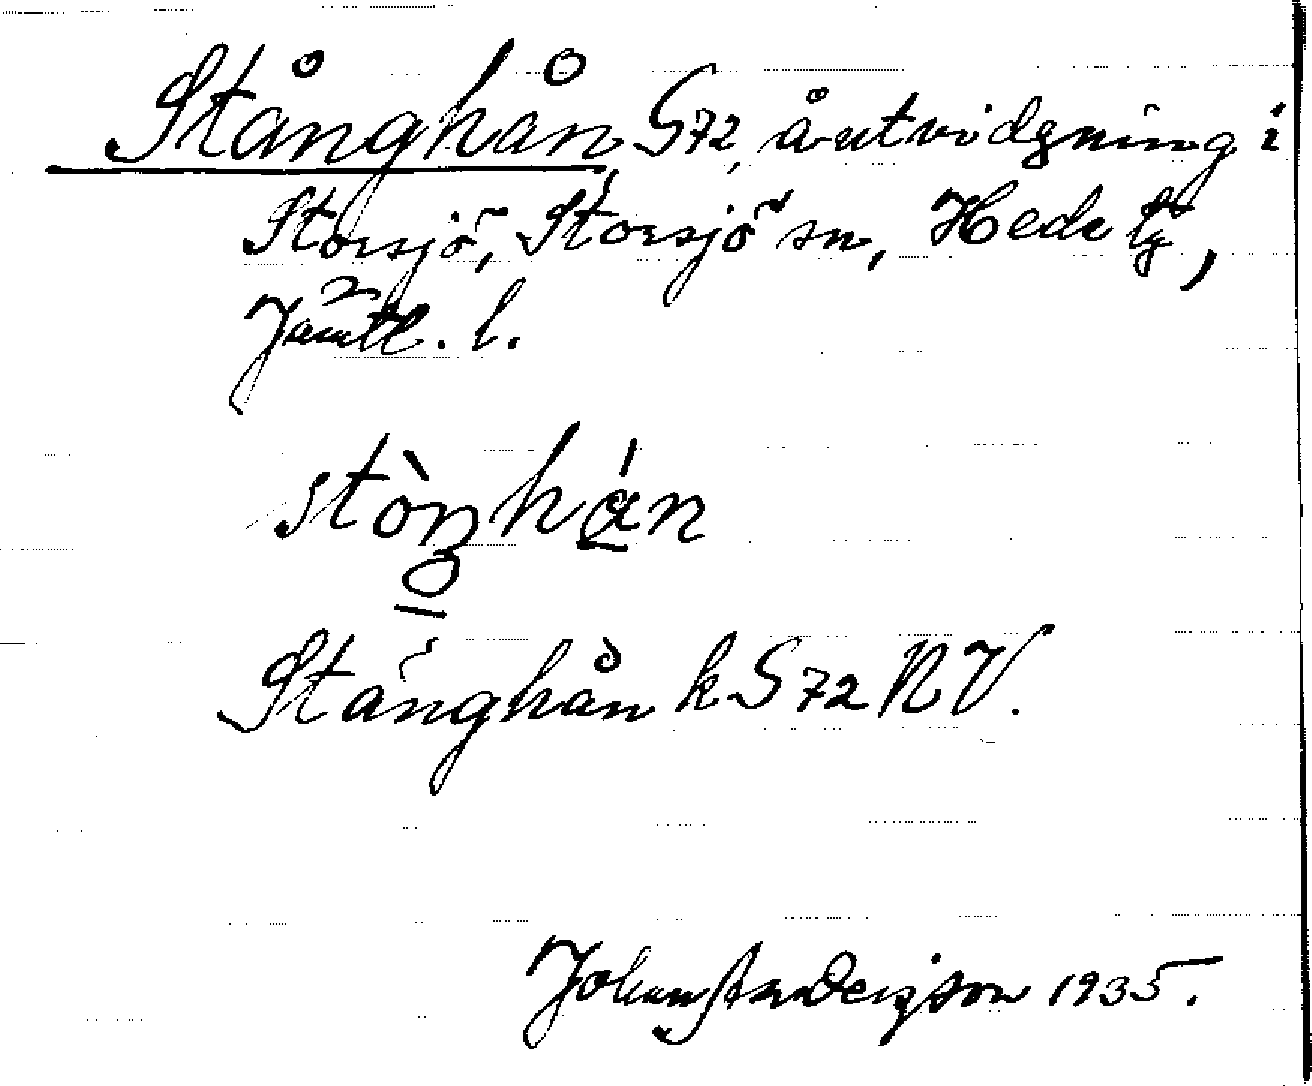 Stånghån S72, åutvidgning i
Storsjö, Storsjö sn, Hede tg,
Jämtl. l.
stòŋhán
Stånghån k S72 NV.
Johan Anderzson 1935.